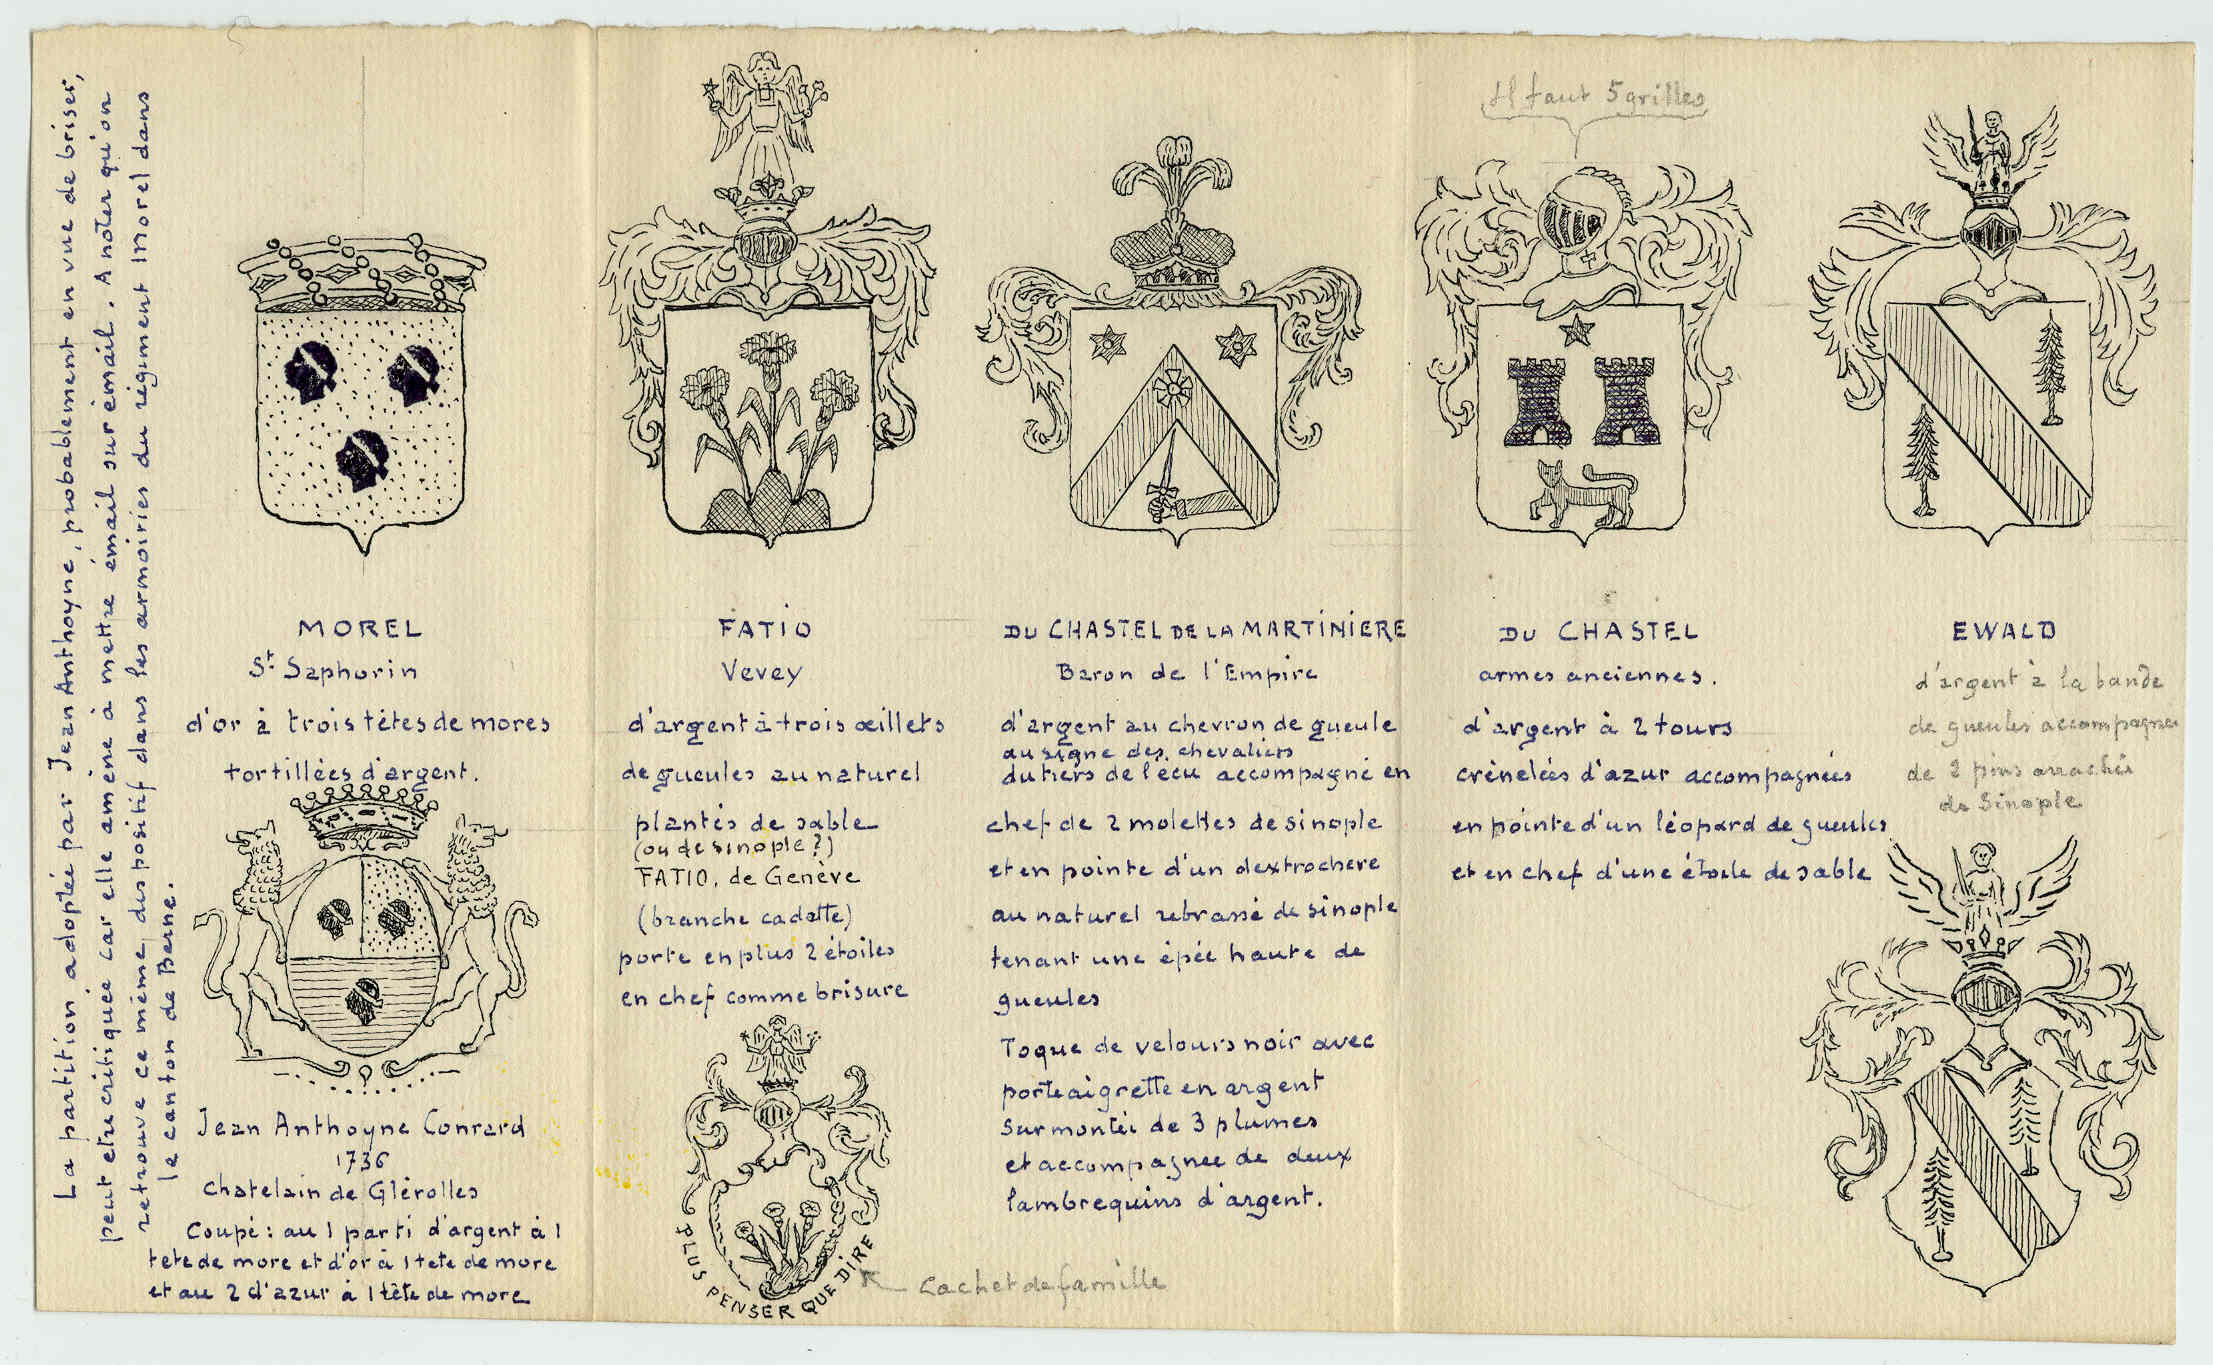 La partition adoptée par Jean Anthoyne, probablement en vue de briser,
peut etre critiquée car elle amène à mettre émail sur émail. A noter qu'on
retrouve ce même dispositif dans les armoiries du régiment Morel dans
le canton de Berne.
MOREL
St. Saphorin
d'or à trois têtes de mores
tortillées d'argent.
Jean Anthoyne Conrard
1736
Chatelain de Glérolles
Coupé: au 1 parti d'argent à 1
tete de more et d'or à 1 tete de more
et au 2 d'azur à 1 tête de more
FATIO
Vevey
d'argent à trois œillets
de gueules au naturel
plantés de sable
(ou de sinople?)
FATIO, de Genève
(branche cadette)
porte en plus 2 étoiles
en chef comme brisure
PLUS PENSER QUE DIRE
Cachet de famille
DU CHASTEL DE LA MARTINIERE
Baron de l'Empire
d'argent au chevron de gueule
au signe des chevaliers
du tiers de l'écu accompagné en
chef de 2 molettes de sinople
et en pointe d'un dextrochere
au naturel rebrassé de sinople
tenant une épée haute de
gueules
Toque de velours noir avec
porte aigrette en argent
Surmontéi de 3 plumes
et accompagnee de deux
lambrequins d'argent.
Il faut 5 grilles
DU CHASTEL
armes anciennes.
d'argent à 2 tours
crènelées d'azur accompagnées
en pointe d'un léopard de gueules
et en chef d'une étoile de sable
EWALD
d'argent à la bande
de gueules accompagnée
de 2 pins arrachés
de Sinople